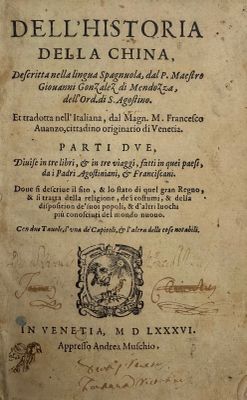 DELL'HISTORIA
DELLA CHINA,
Descritta nella lingua Spagnuola, dal P. Maestro
Giouanni Gonzalez di Mendozza,
dell'Ord. di S. Agostino.
Et tradotta nell'Italiana, dal Magn. M. Francesco
Auanzo, cittadino originario di Venetia.
PARTI DVE,
Diuise in tre libri, & in tre viaggi, fatti in quei paesi,
da i Padri Agostiniani, & Franciscani.
Doue si descriue il sito, & lo stato di quel gran Regno,
& si tratta della religione, de i costumi, & della
disposition de' suoi popoli, & d'altri luochi
più conosciuti del mondo nuouo.
Con due Tauole, l'una de' Capitoli, & l'altra delle cose notabili.
IN VENETIA, M D LXXXVI.
Appresso Andrea Muschio.